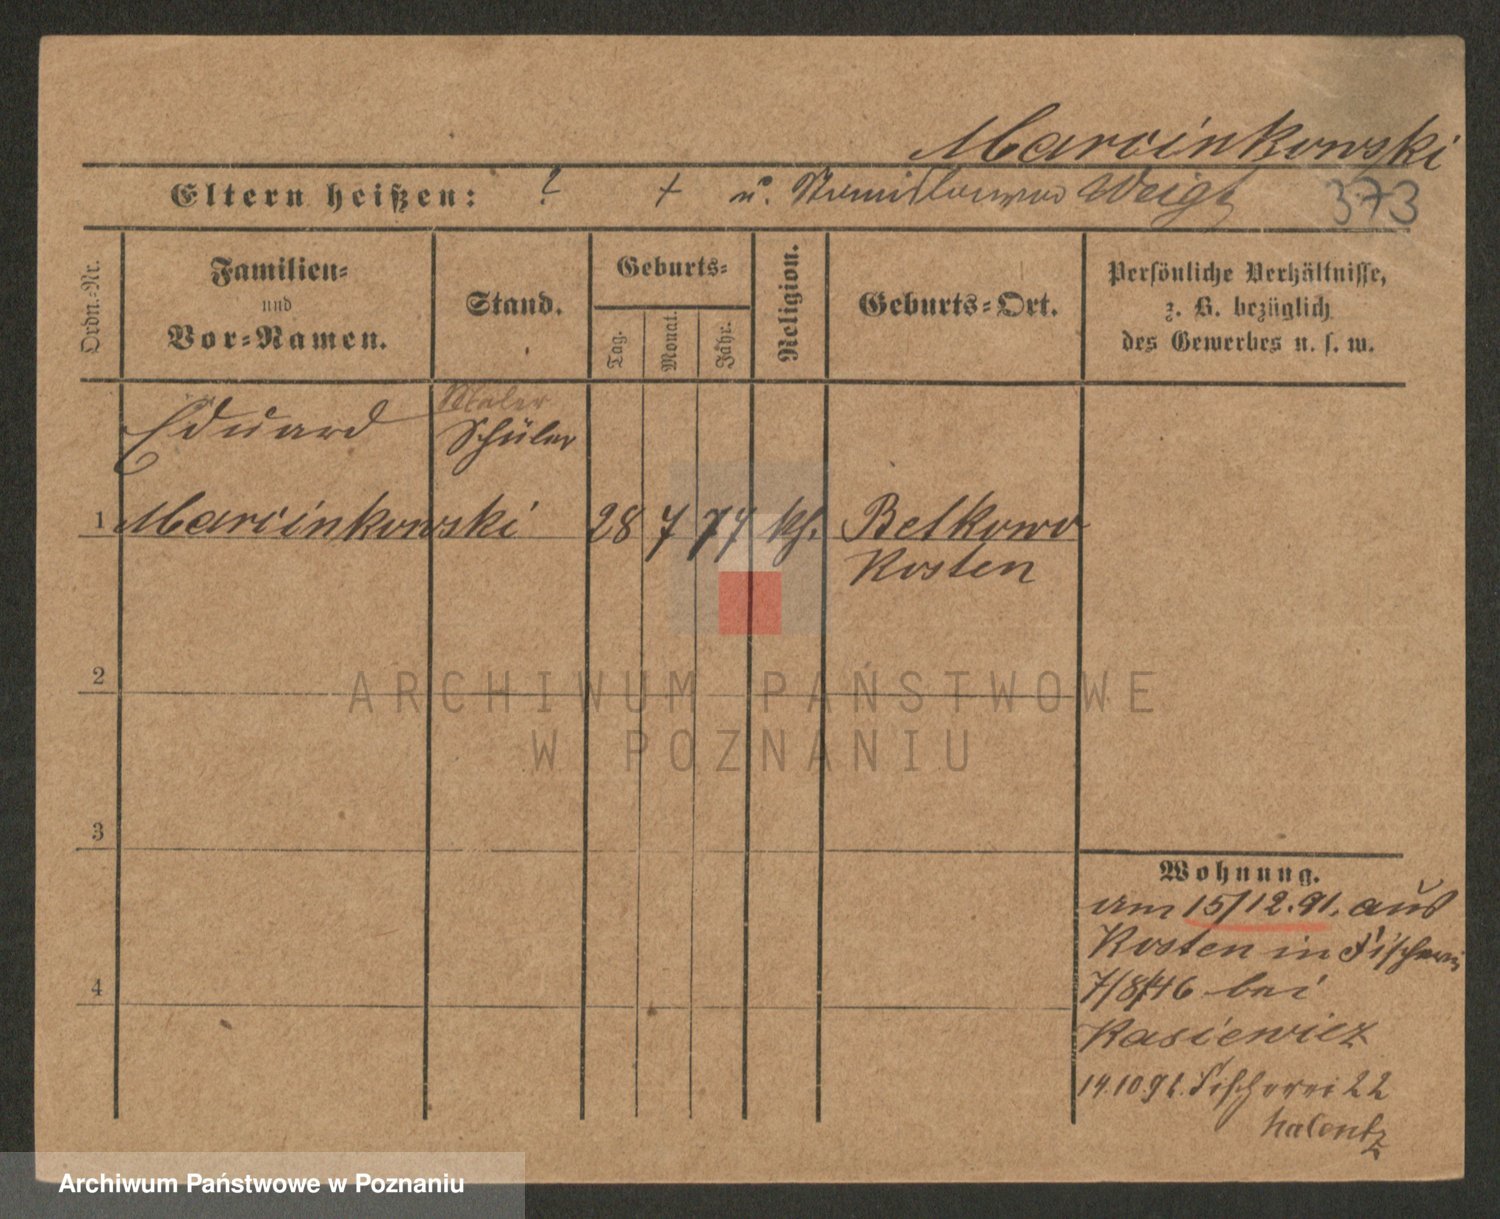 Marcinkowski
Eltern heißen: ? + u. Stanislawa Weigt 373
Ordn.-Nr.
Familien-
und
Vor-Namen.
Stand.
Geburts-
Tag.
Monat.
Jahr.
Religion.
Geburts-Ort.
Persönliche Verhältnisse,
z. B. bezüglich
des Gewerbes u. s. w.
Maler
Eduard Schüler
1 Marcinkowski 28 7 77 kh. Belkowo
Kosten
2
3
4
Wohnung.
am 15/12.91. aus
Kosten in Fischerei
7/8/46 bei
Kasiewicz
14.10.91. Fischerei 22
ARCHIWUM PAŃSTWOWE
W POZNANIU
Archiwum Państwowe w Poznaniu